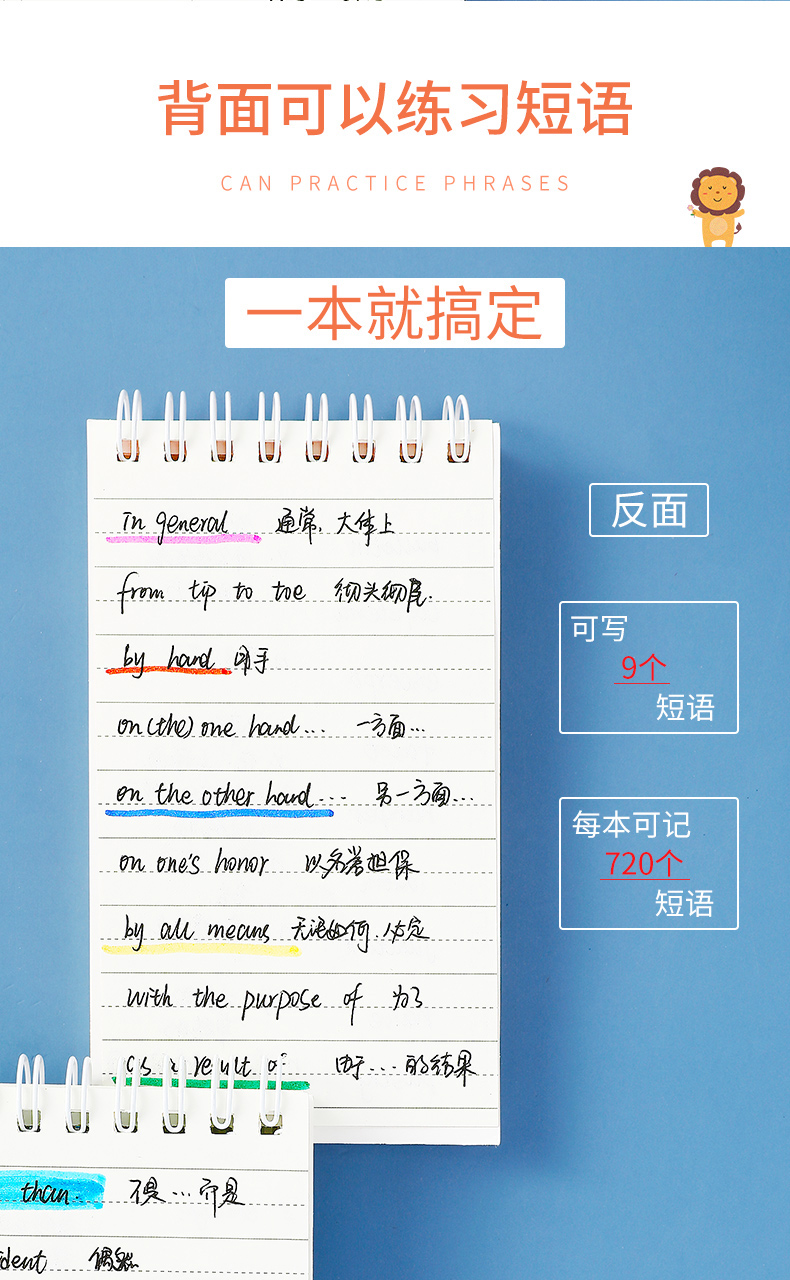 背面可以练习短语
CAN PRACTICE PHRASES
一本就搞定
in general 通常, 大体上
from tip to toe 彻头彻尾.
by hand 用手
on(the) one hand... 一方面...
on the other hand... 另一方面...
on one's honor 以名誉担保
by all means 无论如何, 一定
with the purpose of 为了
as a result of 由于...的结果
than. 不是...而是
ident 偶然
反面
可写
9个
短语
每本可记
720个
短语